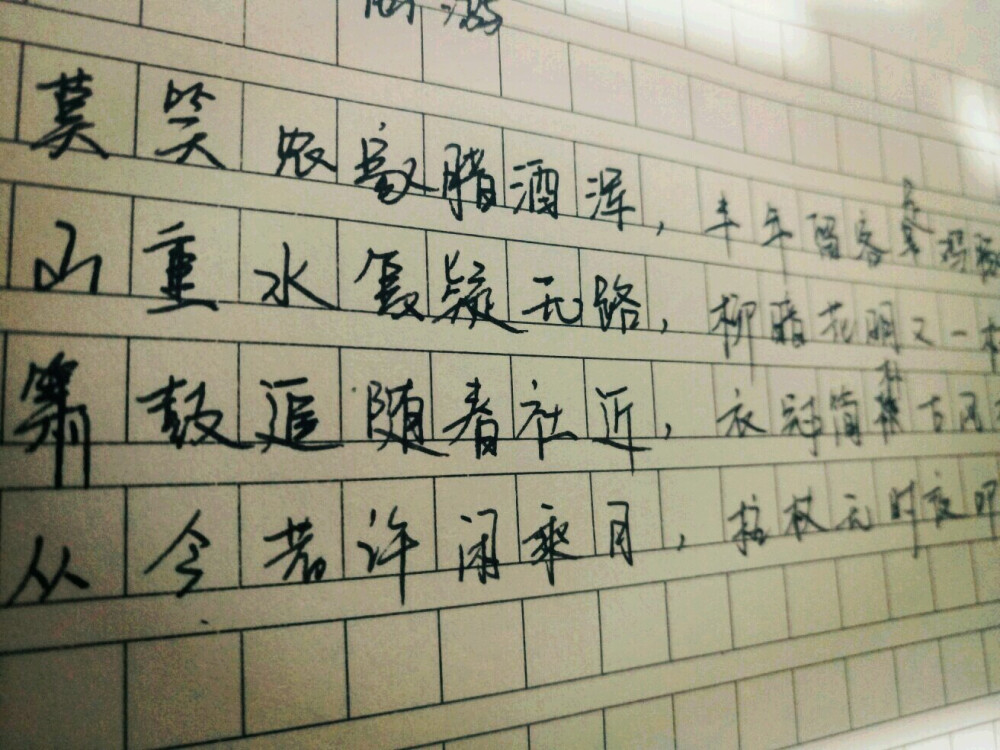 莫笑农家腊酒浑,丰年留客足鸡豚
山重水复疑无路,柳暗花明又一村
箫鼓追随春社近,衣冠简朴古风
从今若许闲乘月,拄杖无时夜叩